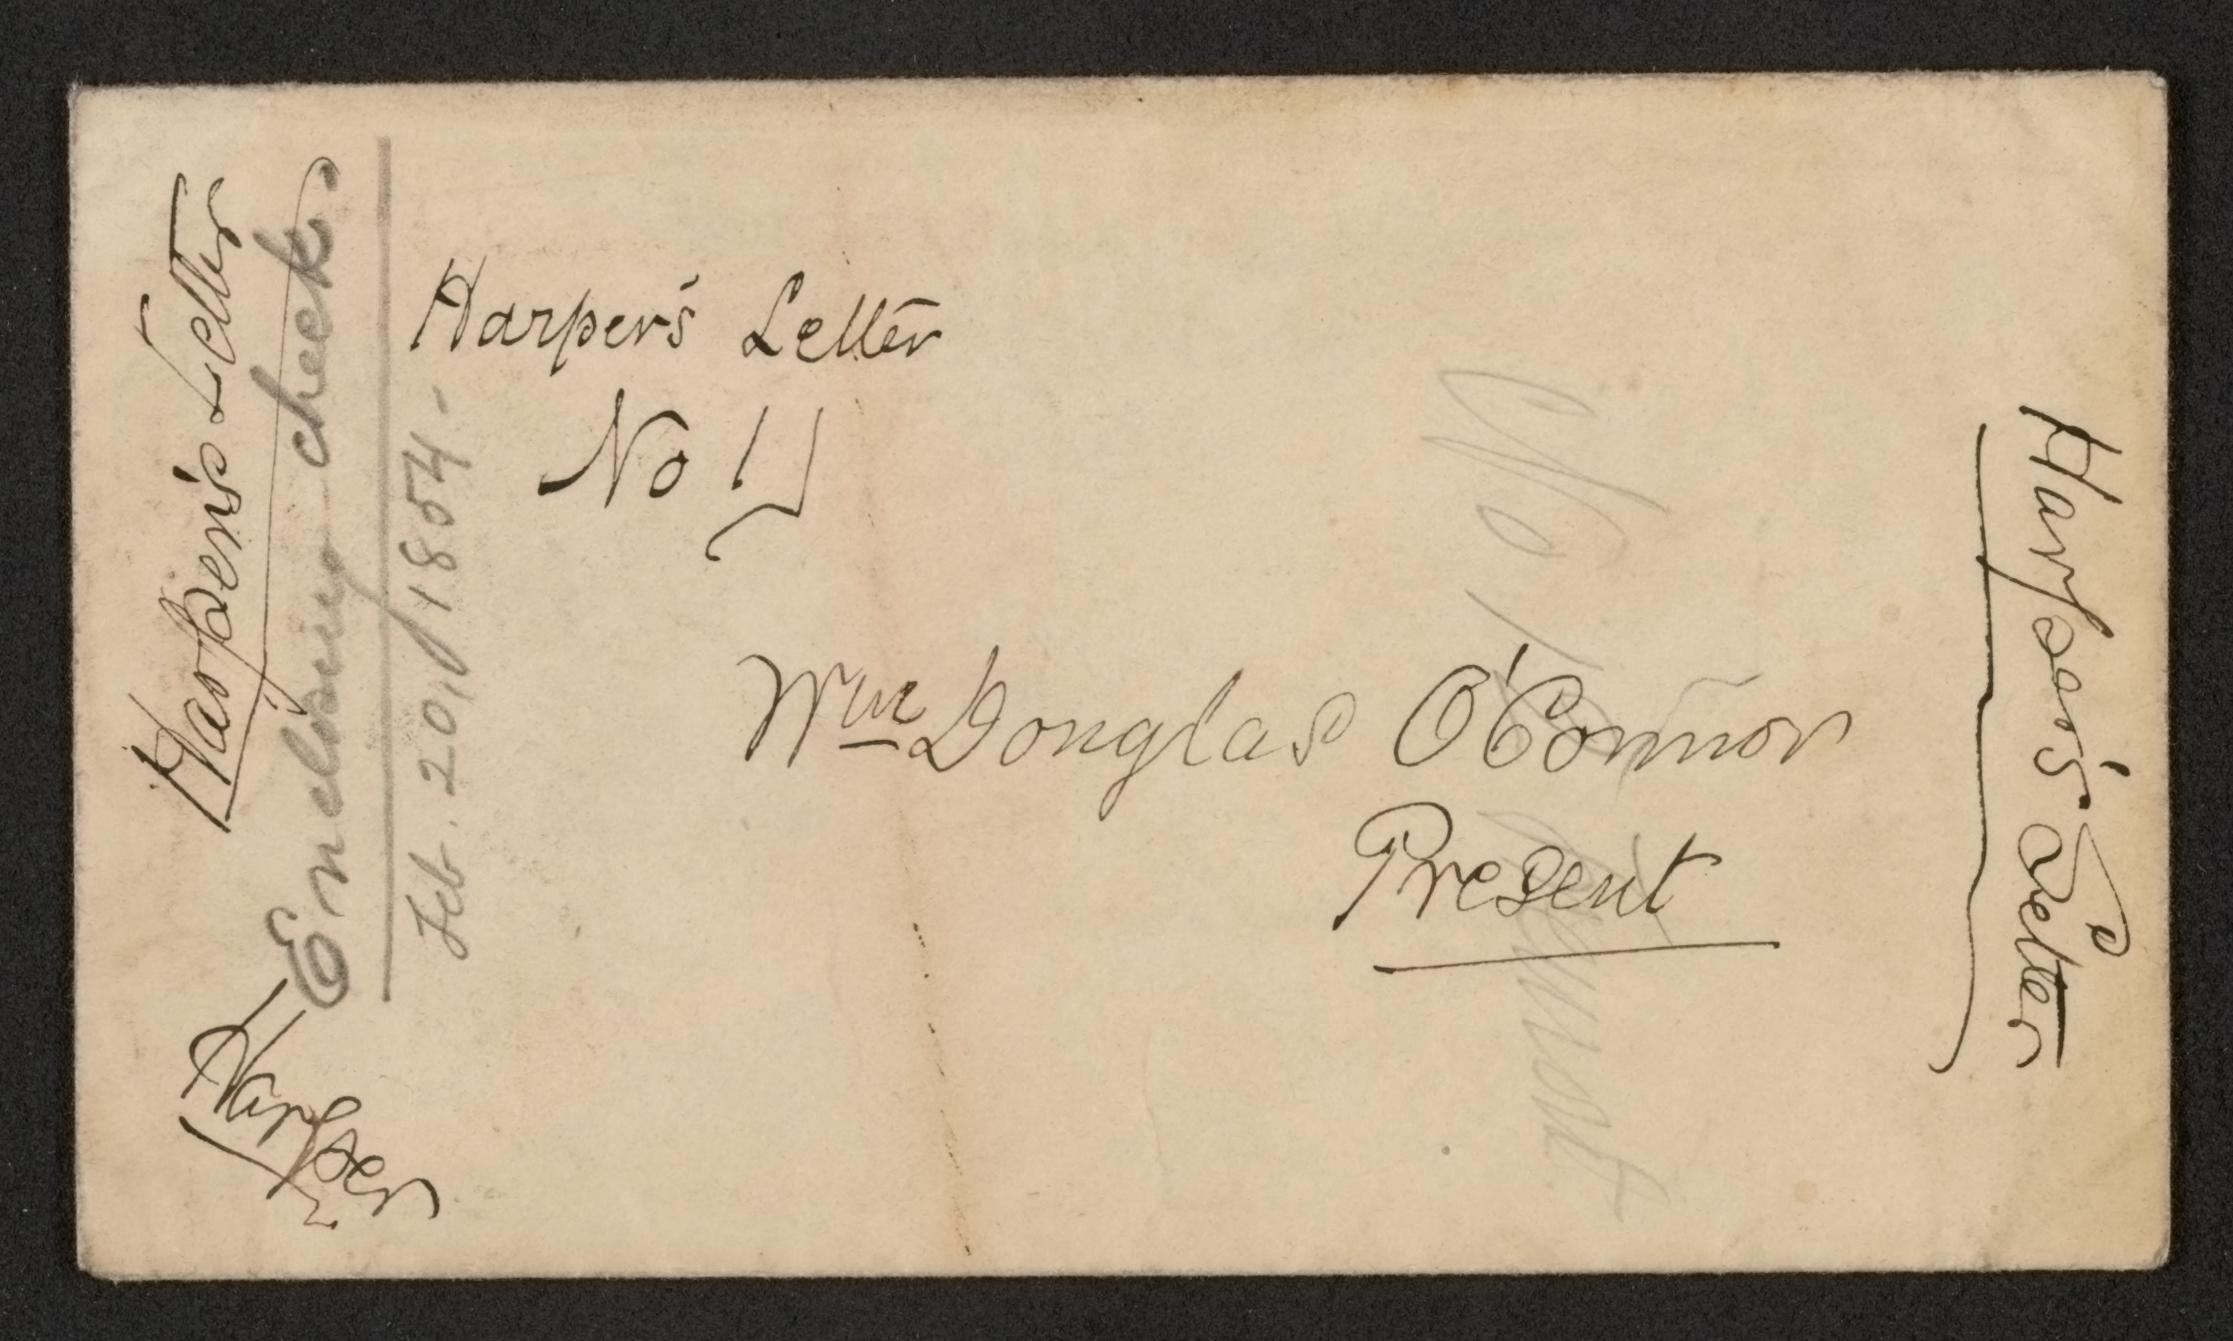 Harper's Letter
Enclosing check.
Feb. 20, 1854-
Harper
Harper's Letter
No 1
Wm Douglas O'Connor
Present
No 1
Harper's Letter